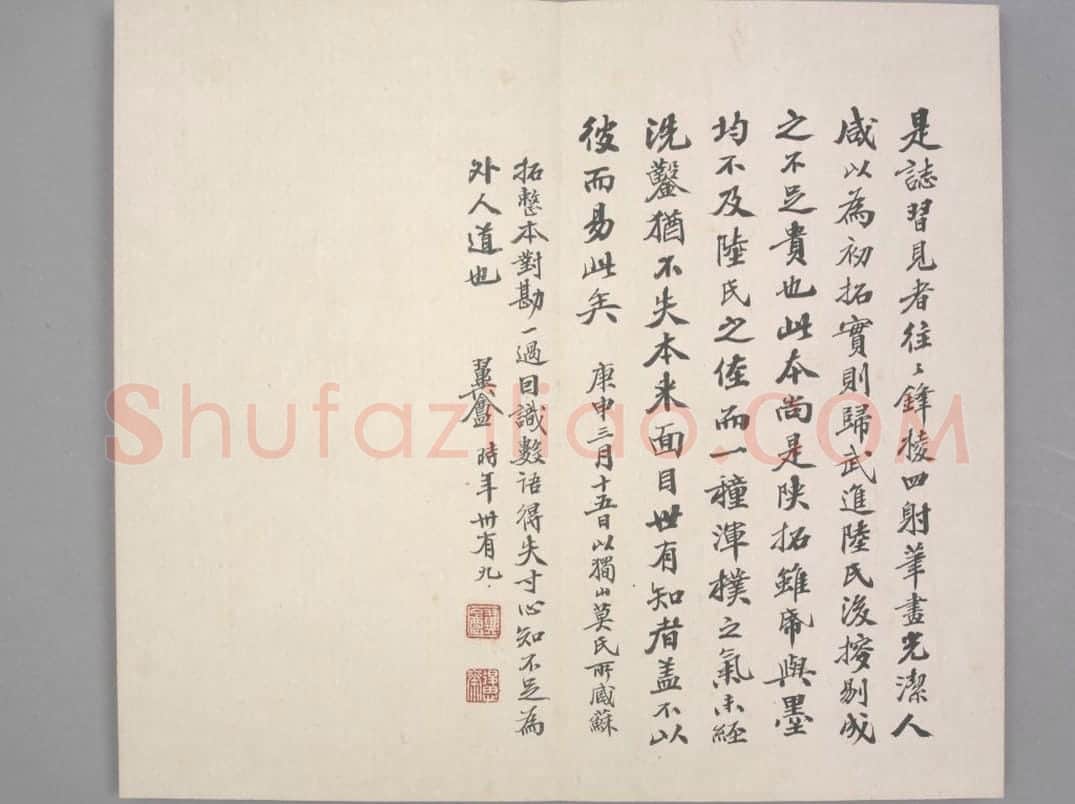 是誌習見者往〻鋒棱四射筆畫光潔人
咸以為初拓實則歸武進陸氏後搜剔成
之不足貴也此本尚是陝拓雖帋與墨
均不及陸氏之佳而一種渾樸之氣未經
洗鑿猶不失本来面目世有知者盖不以
彼而易此矣
庚申三月十五日以獨山莫氏所咸蘇
拓整本對勘一過回識數語得失寸心知不足為
外人道也
翼盦 時年卅有九
Shufaziliao.com